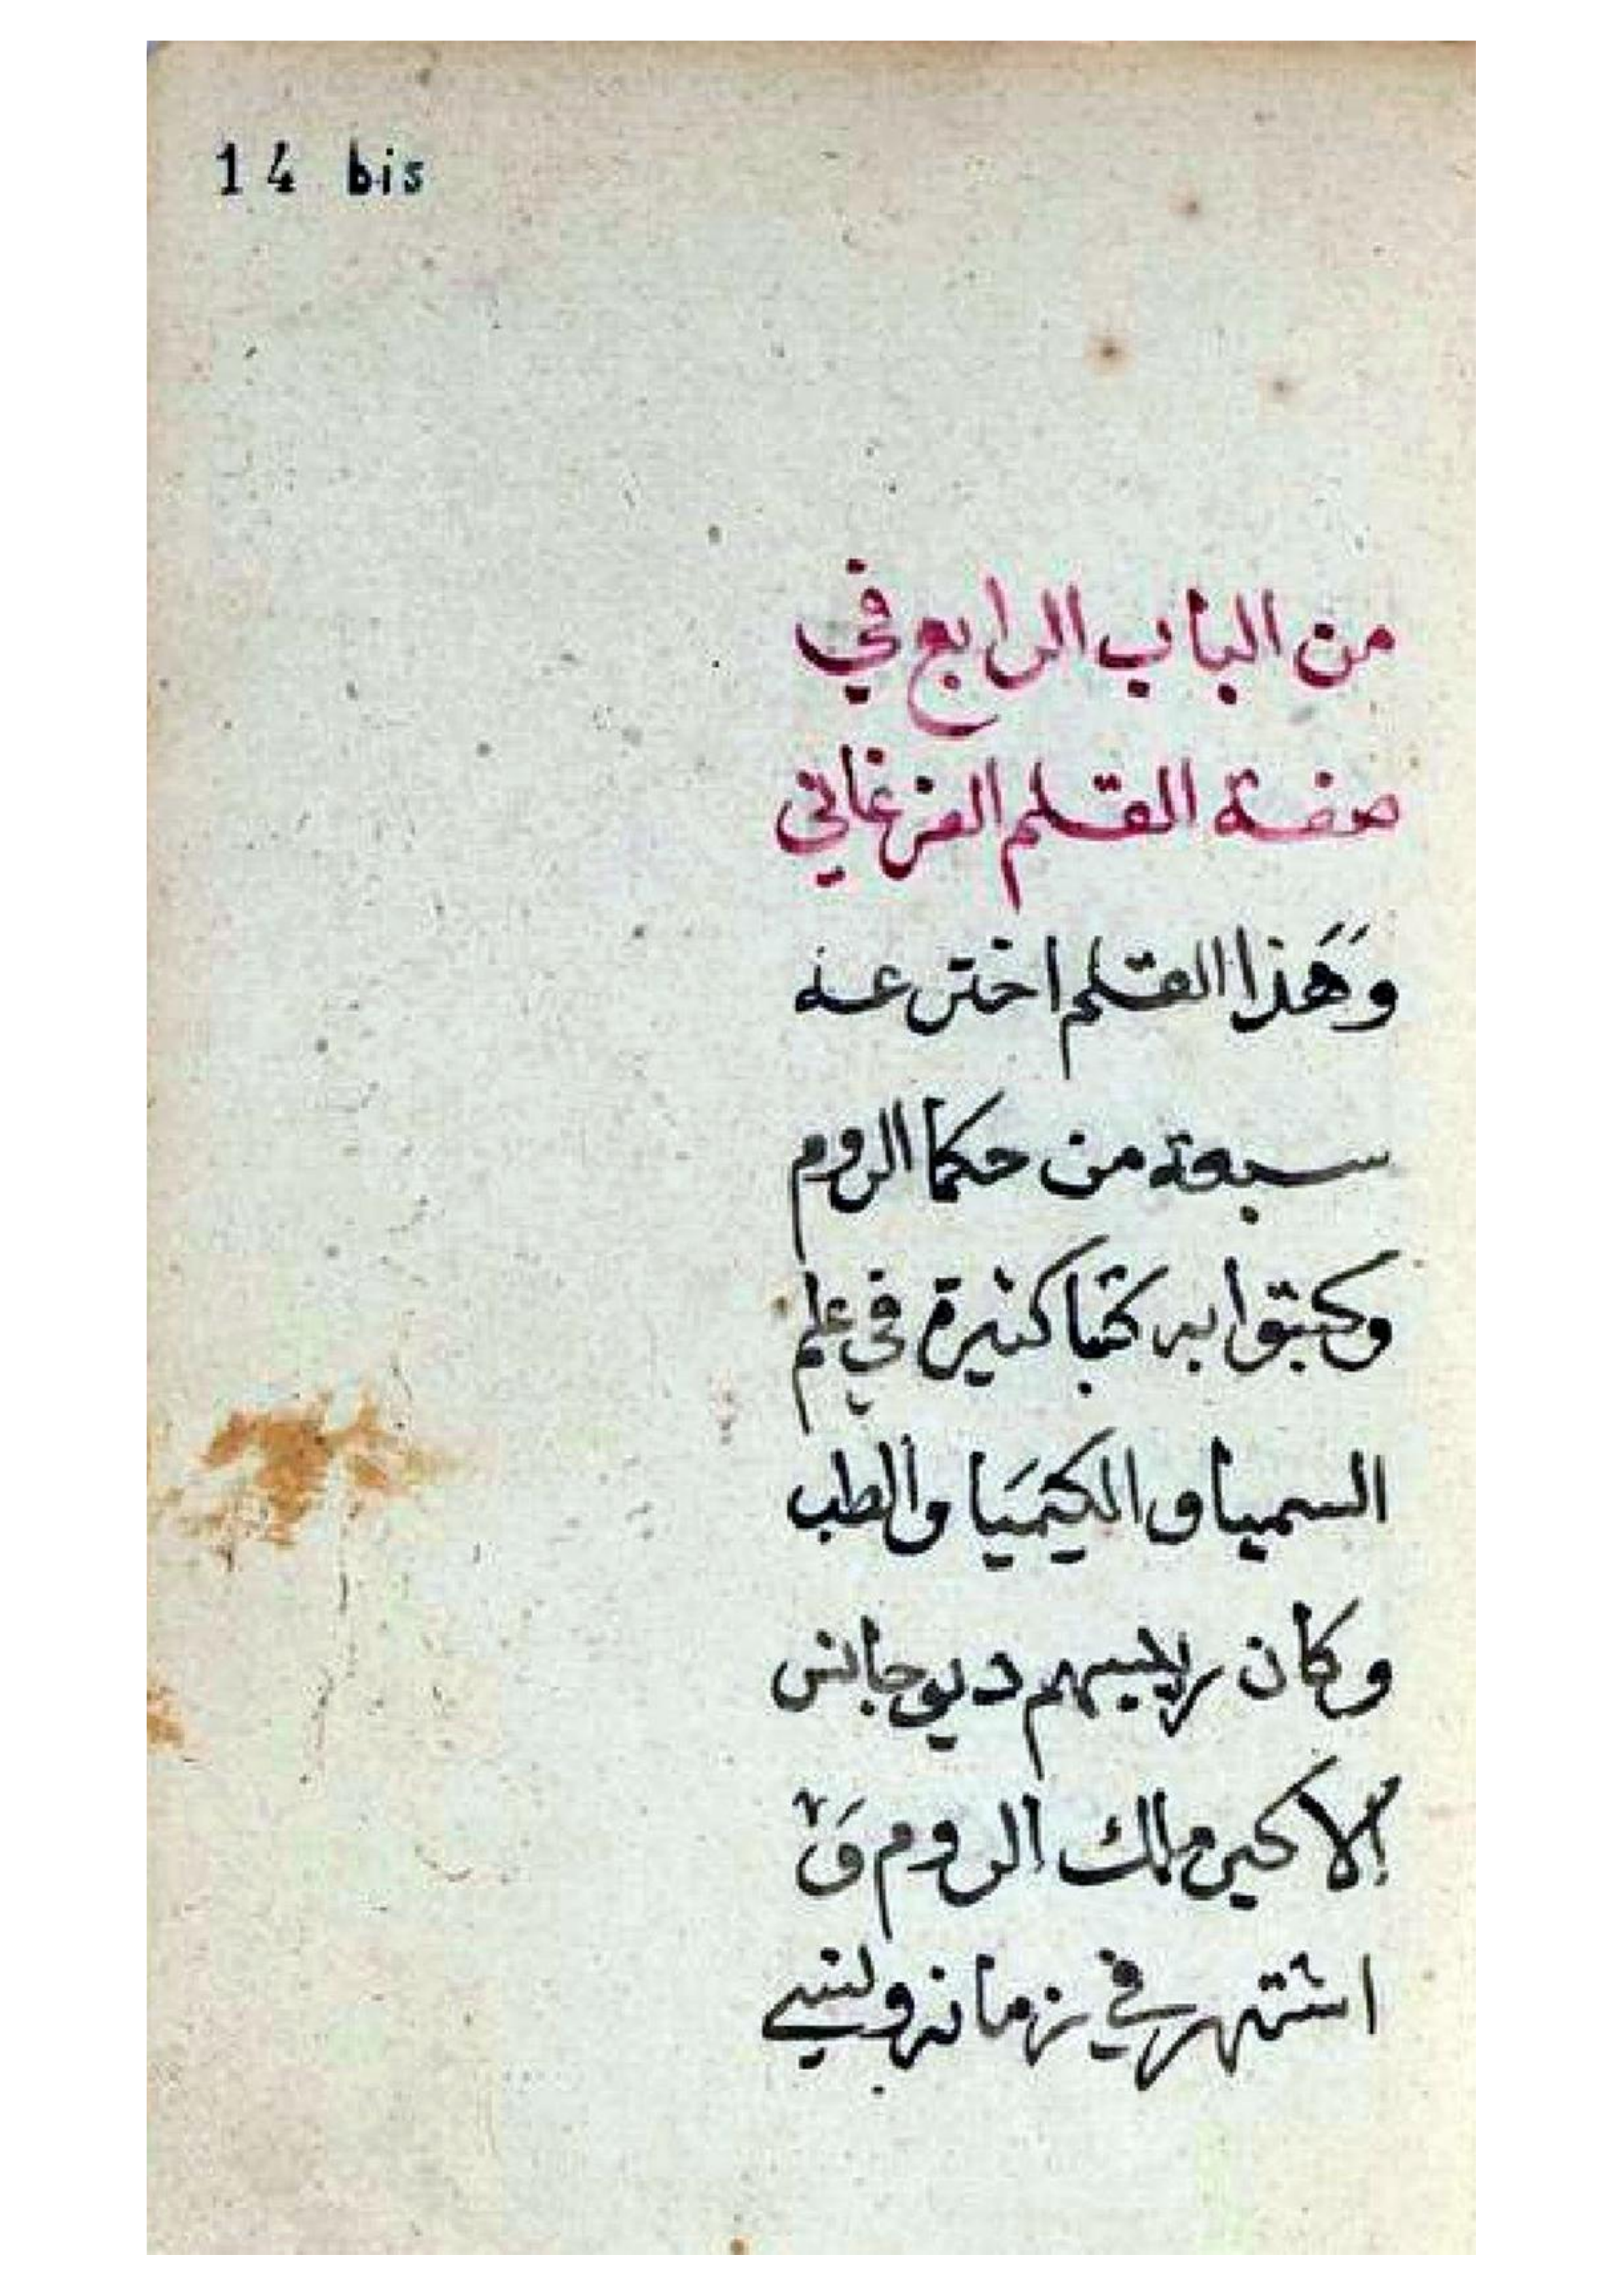 14 bis
من الباب الرابع في
صفة القلم الفرغاني
وَهَذا القلم اخترعه
سبعة من حكما الروم
وكتبوا به كتبا كثيرة في علم
السميا والكيمَيا والطب
وكان رييسهم ديوجانس
الاكبر ملك الروم وَ
اشتهر في زمانه ونسي